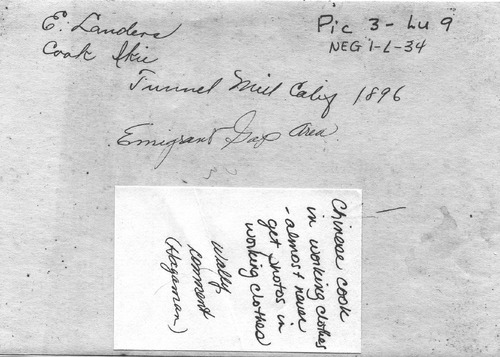 E. Landers
Cook Ikie
Tunnel Mill Calif 1896
Emigrant Gap Area
Pic 3 - Lu 9
NEG 1-L-34
Chinese cook
in working clothes
- almost never
get photos in
working clothes
Wally
comment
(Hagaman)